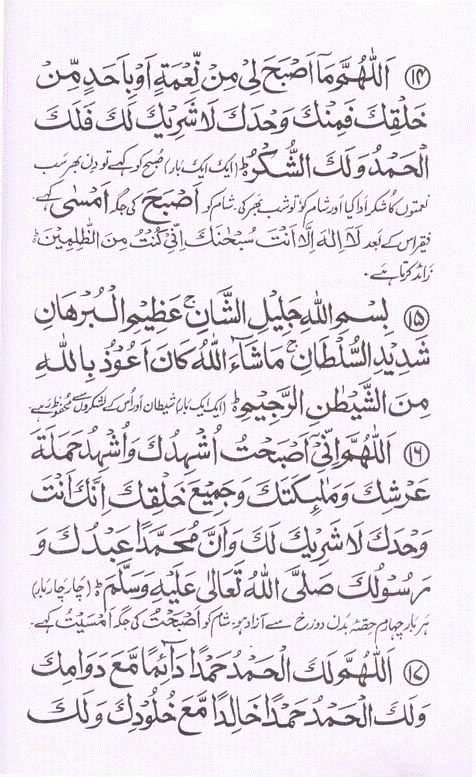 ۱۴ اَللّٰهُمَّ مَآ اَصْبَحَ لِیْ مِنْ نِّعْمَةٍ اَوْ بِاَحَدٍ مِّنْ
خَلْقِكَ فَمِنْكَ وَحْدَكَ لَا شَرِیْكَ لَكَ فَلَكَ
الْحَمْدُ وَ لَكَ الشُّكْرُ ط (ایک ایک بار) صبح کو کہے تو دن بھر سب
نعمتوں کا شکر ادا کیا اور شام کو تو شب بھر کی، شام کو اَصْبَحَ کی جگہ اَمْسٰی کہے۔
فقیر اس کے بعد لَآ اِلٰهَ اِلَّا اَنْتَ سُبْحٰنَكَ اِنِّیْ كُنْتُ مِنَ الظّٰلِمِیْنَ ط
زائد کرتا ہے۔
۱۵ بِسْمِ اللّٰهِ جَلِیْلِ الشَّانِ ج عَظِیْمِ الْبُرْهَانِ
شَدِیْدِ السُّلْطَانِ ج مَاشَآءَ اللّٰهُ كَانَ اَعُوْذُ بِاللّٰهِ
مِنَ الشَّیْطٰنِ الرَّجِیْمِ ط (ایک ایک بار) شیطان اور اُس کے لشکروں سے محفوظ رہے۔
۱۶ اَللّٰهُمَّ اِنِّیْ اَصْبَحْتُ اُشْهِدُكَ وَ اُشْهِدُ حَمَلَةَ
عَرْشِكَ وَ مَلٰٓئِكَتَكَ وَ جَمِیْعَ خَلْقِكَ اِنَّكَ اَنْتَ
وَحْدَكَ لَا شَرِیْكَ لَكَ وَ اَنَّ مُحَمَّدًا عَبْدُكَ وَ
رَسُوْلُكَ صَلَّی اللّٰهُ تَعَالٰی عَلَیْهِ وَسَلَّمَ ط (چار چار بار)
ہر بار چہارم حصّہ بدن دوزخ سے آزاد ہو، شام کو اَصْبَحْتُ کی جگہ اَمْسَیْتُ کہے۔
۱۷ اَللّٰهُمَّ لَكَ الْحَمْدُ حَمْدًا دَآئِمًا مَّعَ دَوَامِكَ
وَ لَكَ الْحَمْدُ حَمْدًا خَالِدًا مَّعَ خُلُوْدِكَ وَ لَكَ